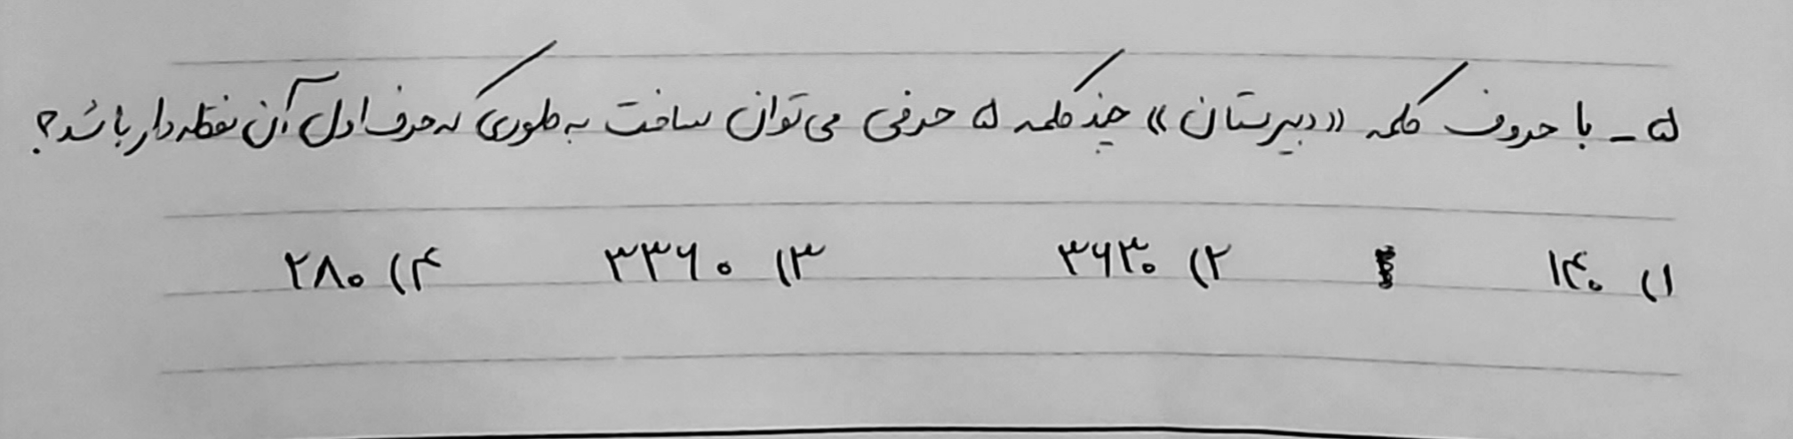 ۵ - با حروف کلمه «دبیرستان» چند کلمه ۵ حرفی می‌توان ساخت به طوری که حرف اول آن نقطه‌دار باشد؟
۱) ۱۴۰ ۲) ۳۶۳۰ ۳) ۳۳۶۰ ۴) ۲۸۰